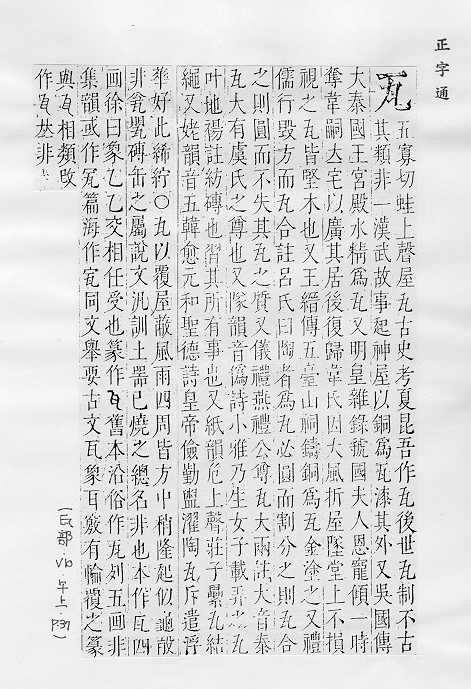 正字通
瓦 五寡切蛙上聲屋瓦古史考夏昆吾作瓦後世瓦制不古
其類非一漢武故事起神屋以銅爲瓦漆其外又吳國傳
大泰國王宮殿水精爲瓦又明皇雜錄虢國夫人恩寵傾一時
奪韋嗣立宅以廣其居後復歸韋氏因大風折屋墜堂上不損
視之瓦皆堅木也又王縉傳五臺山祠鑄銅爲瓦金塗之又禮
儒行毀方而瓦合註呂氏曰陶者爲瓦必圓而割分之則瓦合
之則圓而不失其瓦之質又儀禮燕禮公尊瓦大兩註大音泰
瓦大有虞氏之尊也又隊韻音僞詩小雅乃生女子載弄之瓦
叶地裼註紡磚也習其所有事也又紙韻危上聲莊子纍瓦結
繩又姥韻音五韓愈元和聖德詩皇帝儉勤盥濯陶瓦斥遣浮
華好此綈紵○瓦以覆屋蔽風雨四周皆方中稍隆起似龜殼
非瓮甖磚缶之屬說文汎訓土器已燒之總名非也本作瓦四
画徐曰象乙乙交相任受也篆作瓦舊本沿俗作瓦列五画非
集韻或作 篇海作 同文舉要古文瓦象耳竅有輪覆之篆
與瓦相類改
作瓦𠀤非
(瓦部 V10 午上 P.37)